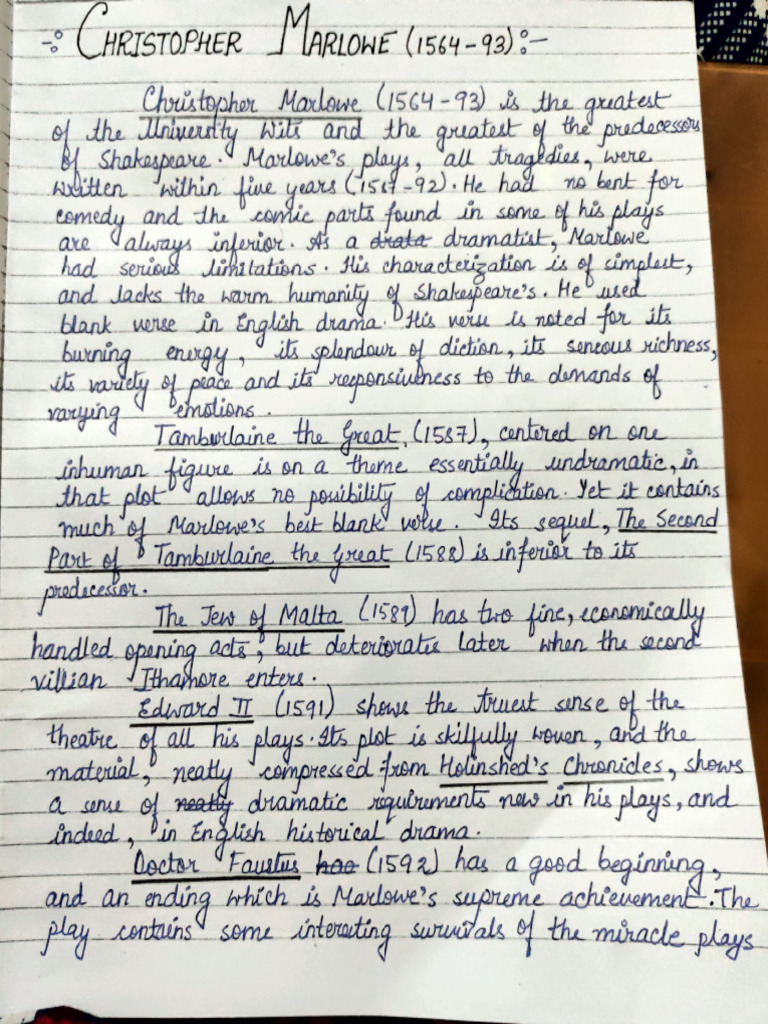 -: CHRISTOPHER MARLOWE (1564-93):-
Christopher Marlowe (1564-93) is the greatest
of the University Wits and the greatest of the predecessors
of Shakespeare. Marlowe's plays, all tragedies, were
written within five years (1587-92). He had no bent for
comedy and the comic parts found in some of his plays
are always inferior. As a drata dramatist, Marlowe
had serious limitations. His characterization is of simplest,
and lacks the warm humanity of Shakespeare's. He used
blank verse in English drama. His verse is noted for its
burning energy, its splendour of diction, its seneous richness,
its variety of peace and its responsiveness to the demands of
varying emotions.
Tamburlaine the Great, (1587), centered on one
inhuman figure is on a theme essentially undramatic, in
that plot allows no possibility of complication. Yet it contains
much of Marlowe's best blank verse. Its sequel, The Second
Part of Tamburlaine the Great (1588) is inferior to its
predecessor.
The Jew of Malta (1589) has two fine, economically
handled opening acts, but deterioratis later when the second
villian Ithamore enters.
Edward II (1591) shows the truest sense of the
theatre of all his plays. Its plot is skilfully woven, and the
material, neatly compressed from Holinshed's Chronicles, shows
a sense of neatly dramatic requirements new in his plays, and
indeed, in English historical drama.
Doctor Faustus has (1592) has a good beginning,
and an ending which is Marlowe's supreme achievement. The
play contains some interesting survivals of the miracle plays